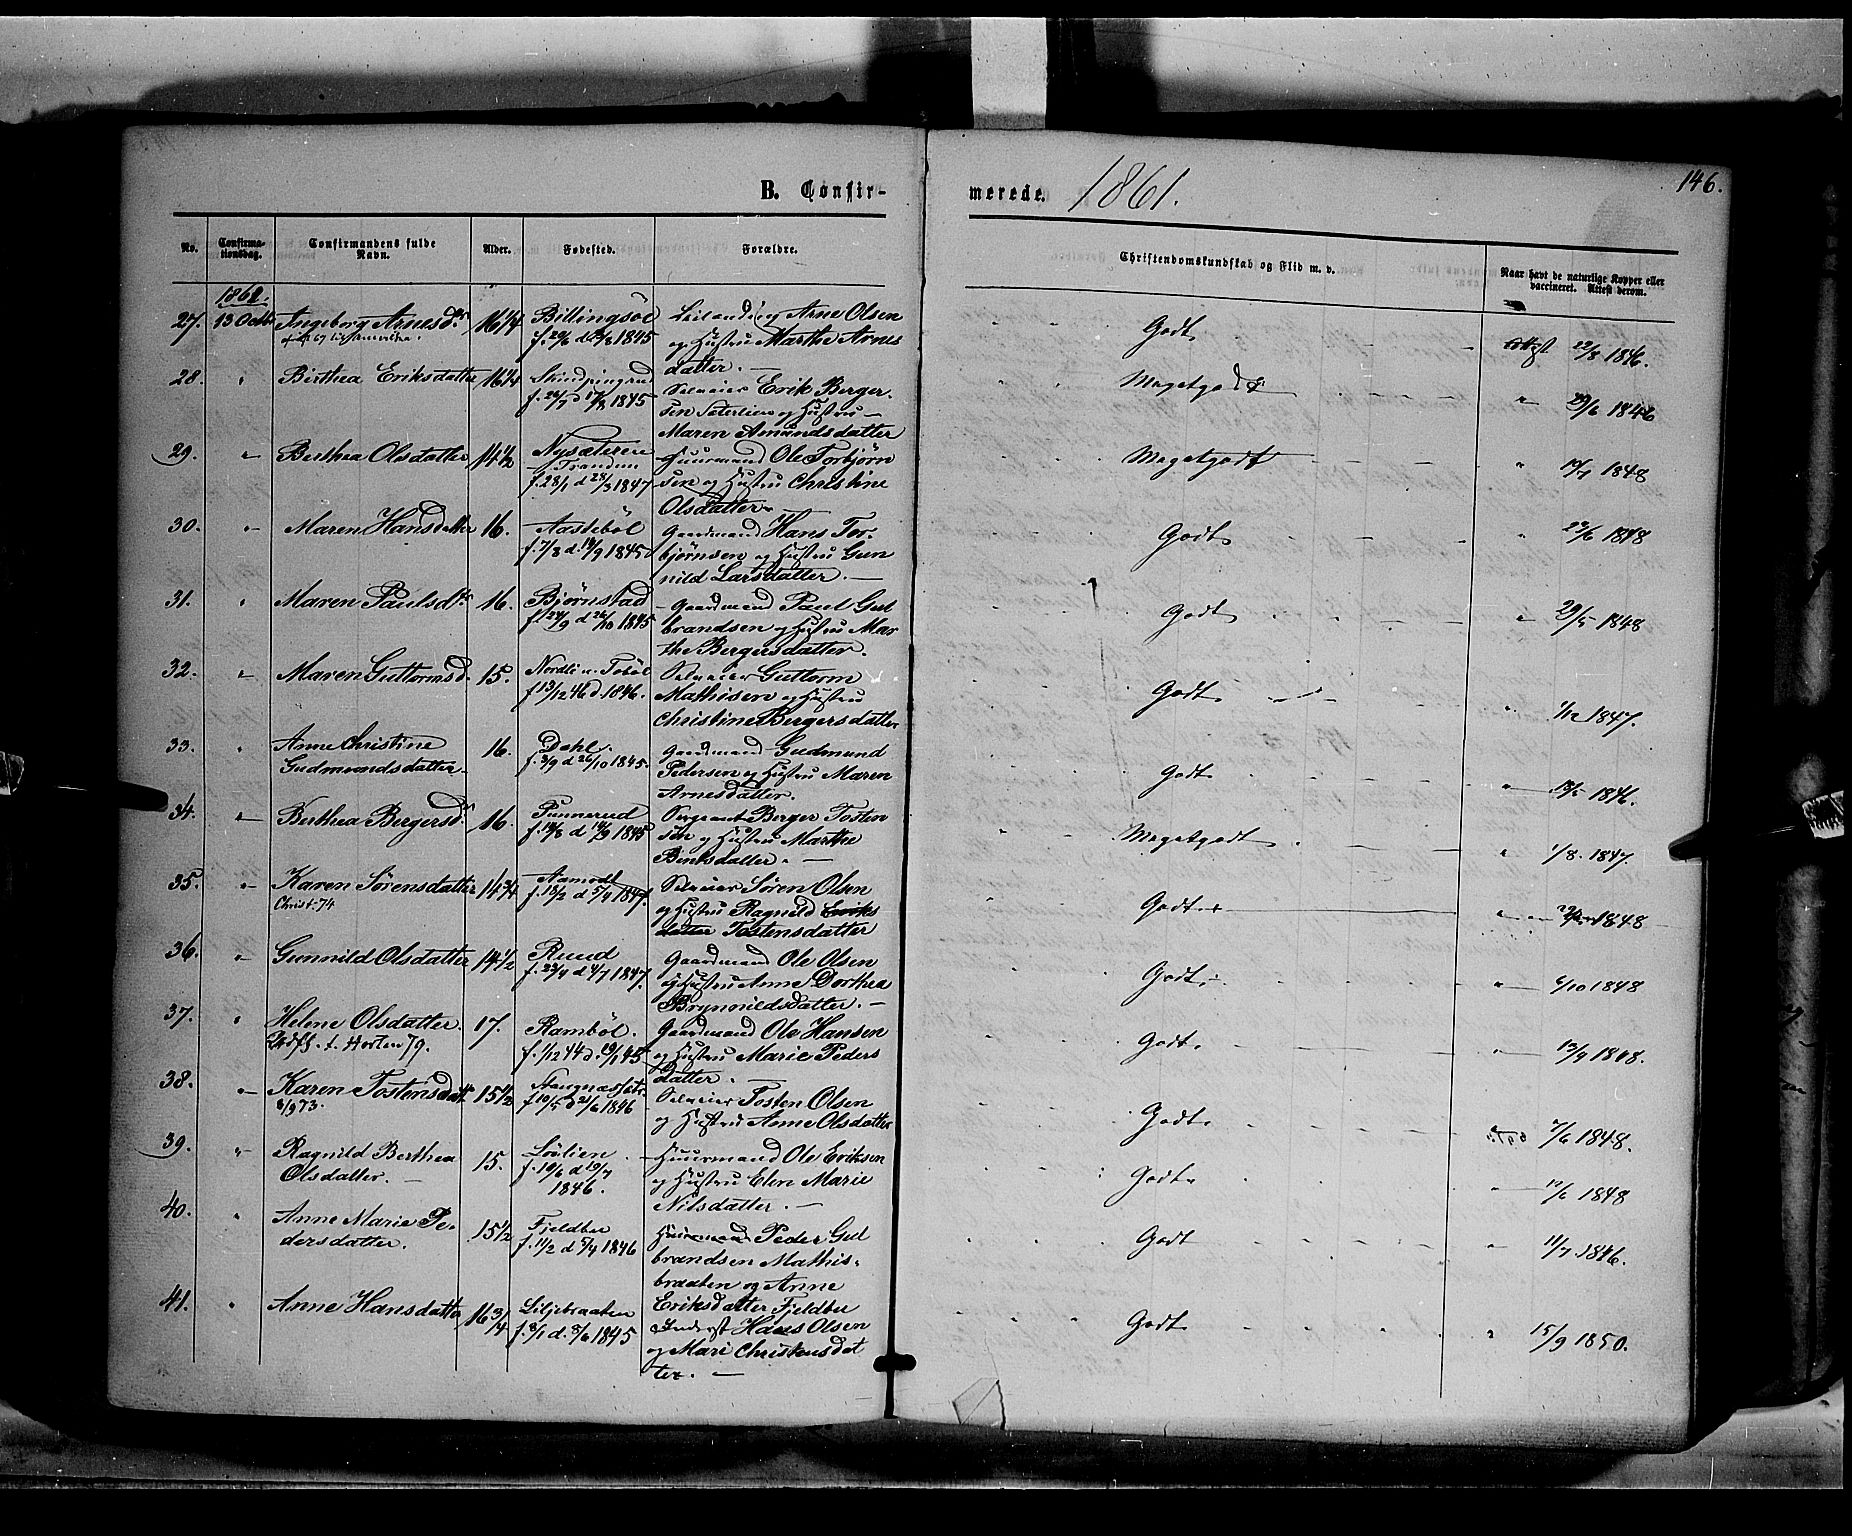 B. Confir-
merede.
1861.
146.
No.
Confirma-
tionsdag.
Confirmandens fulde
Navn.
Alder.
Fødested.
Forældre.
Christendomskundskab og Flid m. v.
Naar havt de naturlige Kopper eller
vaccineret. Attest derom.
1861.
27. 13 Octb. Ingeborg Arnesdr 16 1/4 Billingsöl
Arne Olsen
f. 20/6 d 1845
og Hustru Marthe Arnes
datter. —
Godt
22/8 1846.
28. " Birthea Eriksdatter 16 1/4
f. 26/7 d 17/8 1845
Selveier Erik Berger
sen Seterlien og Hustru —
Maren Amundsdatter
Megetgodt
" 29/6 1846
29. " Berthea Olsdatter 14 1/2 Nysæteren
Tranden
f. 28/1 d 28/3 1847
Huusmand Ole Torbjørn
sen og Hustru Christine
Olsdatter. —
Megetgodt
" 1848
30. " Maren Hansdatter 16. Aastebøl
f. 7/8 d. 14/9 1845
Gaardmand Hans Tor-
bjørnsen og Hustru Gun
nild Larsdatter. —
Godt
" 23/6 1848
31. " Maren Paulsdr 16. Bjørnstad
f. 24/9 d 26/10 1845
Gaardmand Paul Gul
brandsen og Hustru Mar
the Bergersdatter.
Godt
" 29/5 1848
32. " Maren Guttormsd. 15. Nordli u. Tobøl
f 13/12 46 d. 1846.
Selveier Guttorm
Mathisen og Hustru
Christine Bergersdatter
Godt
" 1/12 1847.
33. " Anne Christine
Gudmundsdatter 16. Dahl.
f. 3/9 d 26/10 1845.
Gaardmand Gudmund
Pedersen og Hustru Maren
Arnesdatter.
Godt
" 1846.
34. " Berthea Bergersdr 16. Punnerud
f. 14/8 d 14/9 1845
Sergeant Berger Tosten
sen og Hustru Marthe
Bentsdatter. —
Megetgodt
" 1/8. 1847.
35. " Karen Sørensdatter 14 3/4 Aamodt
Christ. 74
f. 18/2 d 5/4 1847.
Selveier Søren Olsen
og Hustru Ragnild Eriks
datter Tostensdatter
Godt
" 1848
36. " Gunnild Olsdatter 14 1/2 Ruud
f. 23/4 d 4/7 1847.
Gaardmand Ole Olsen
og Hustru Anne Dorthea
Brynnildsdatter. —
Godt
" 6/10 1848
37. " Helene Olsdatter 17. Rambøl.
Udfl. t. Horten 79.
f. 1/12 44 d. 19/1 45
Gaardmand Ole Hansen
og Hustru Marie Peders
datter. —
Godt
" 13/9 1848.
38. " Karen Tostensdatr 15 1/2
8/9 73.
f 10/5 d 21/6 1846
Selveier Tosten Olsen
og Hustru Anne Olsdatter
Godt
7/6 1848.
39. " Ragnild Berthea
Olsdatter. — 15. Lølien
f. 10/6 d 19/7
1846.
Huusmand Ole Eriksen
og Hustru Elen Marie
Nilsdatter. —
Godt
" 12/6 1848
40. " Anne Marie Pe-
dersdatter. 15 1/2 Fjeldbu
f. 11/2 d 5/4 1846
Huusmand Peder Gul
brandsen Mathis-
braaten og Anne
Eriksdatter Fjeldbu
Godt
" 11/7 1846.
41. " Anne Hansdatter 16 3/4 Liljebraaten
f. 3/1 d. 3/6 1845
Inderst Hans Olsen
og Mari Christensdat
ter. —
Godt
" 15/9 1850.